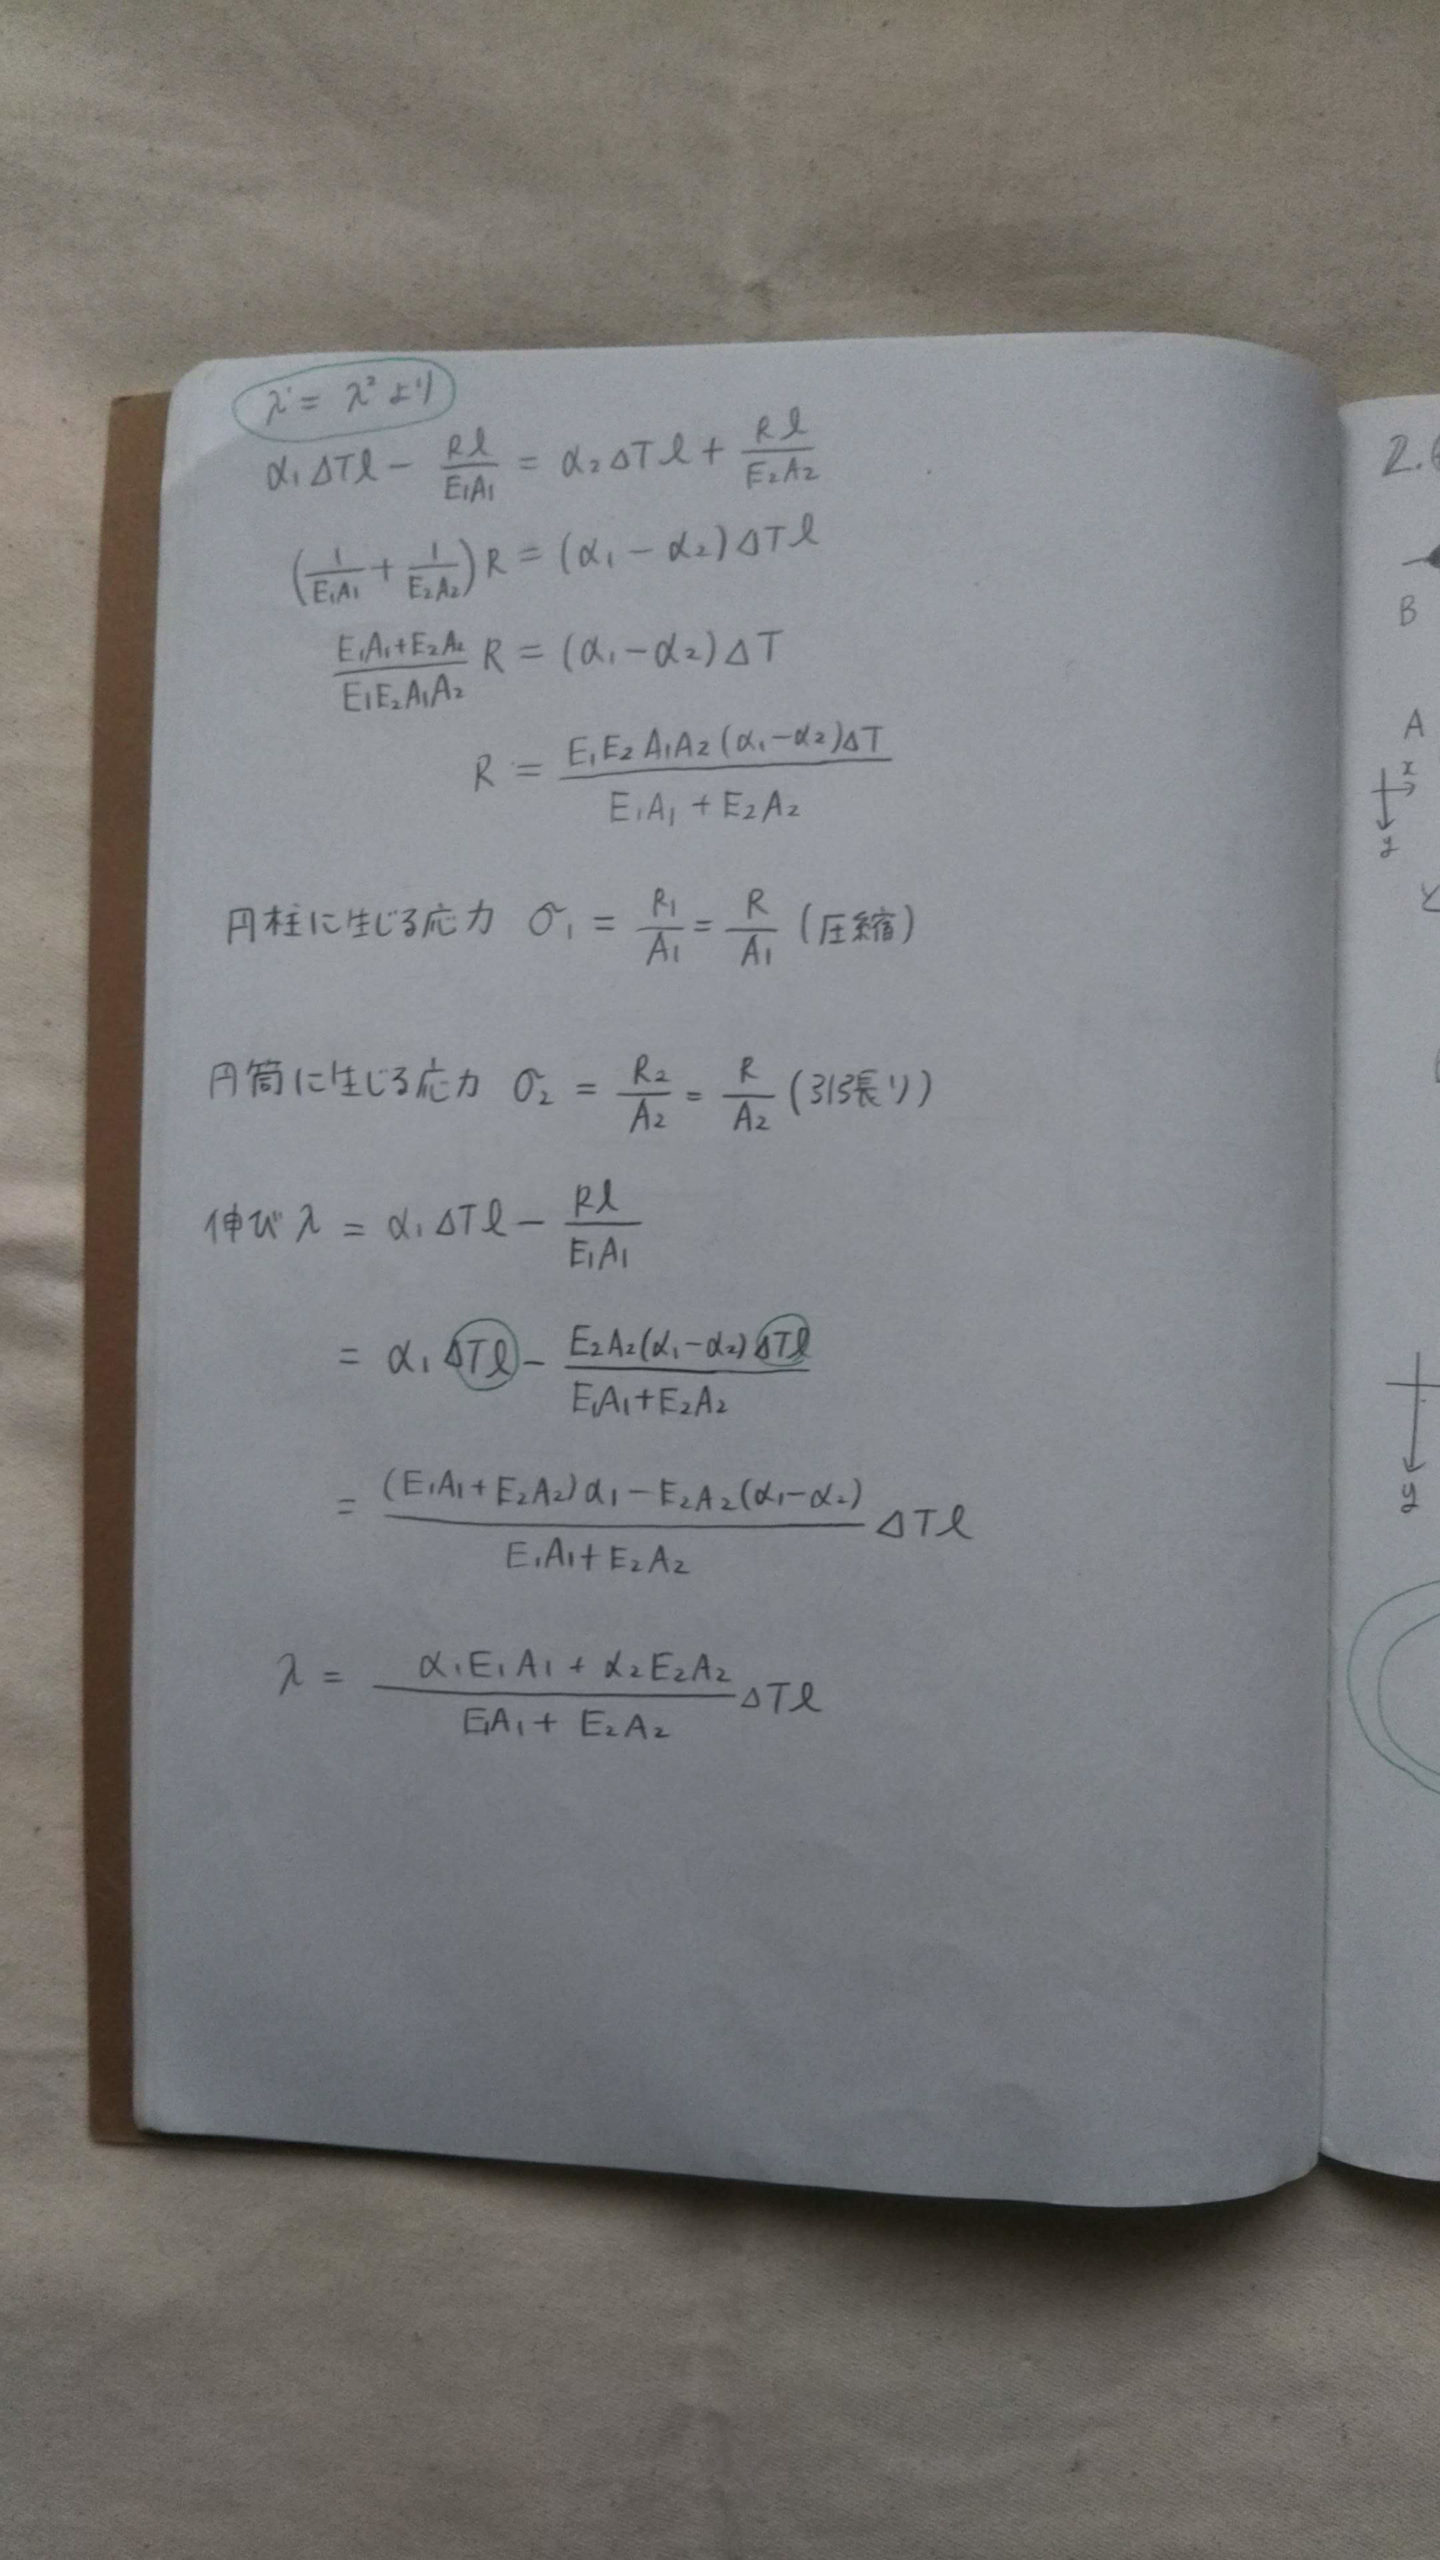 λ¹ = λ² より
α₁ΔTl − Rl/E₁A₁ = α₂ΔTl + Rl/E₂A₂
(1/E₁A₁ + 1/E₂A₂)R = (α₁ − α₂)ΔTl
E₁A₁+E₂A₂/E₁E₂A₁A₂ R = (α₁−α₂)ΔT
R = E₁E₂A₁A₂(α₁−α₂)ΔT/E₁A₁ + E₂A₂
円柱に生じる応力 σ₁ = R₁/A₁ = R/A₁ (圧縮)
円筒に生じる応力 σ₂ = R₂/A₂ = R/A₂ (引張り)
伸び λ = α₁ΔTl − Rl/E₁A₁
= α₁ΔTl − E₂A₂(α₁−α₂)ΔTl/E₁A₁+E₂A₂
= (E₁A₁+E₂A₂)α₁−E₂A₂(α₁−α₂)/E₁A₁+E₂A₂ ΔTl
λ = α₁E₁A₁ + α₂E₂A₂/E₁A₁ + E₂A₂ ΔTl
2.
B
A
x
y
y